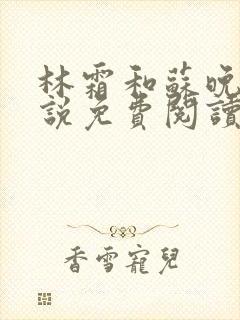 林霜和蘇晚
說免費閱讀
香雪寵兒